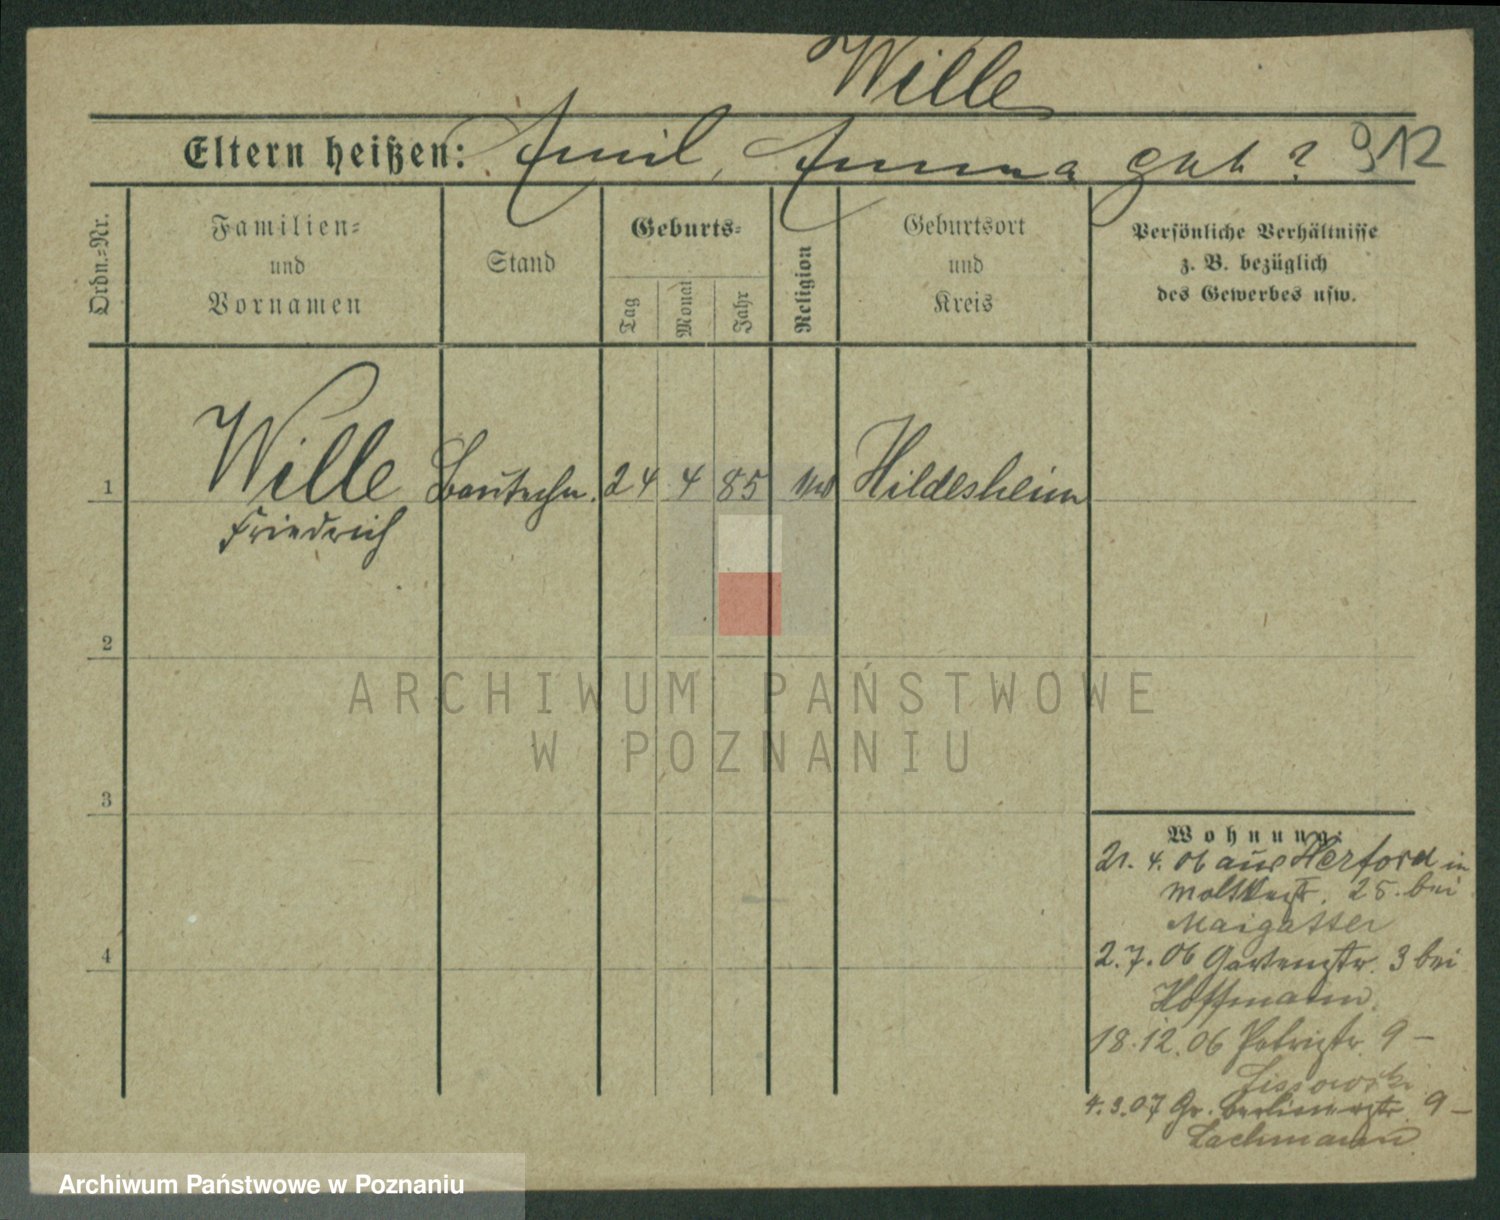 Wille
Eltern heißen: Emil, Emma geb ? 912
Ordn.=Nr.
Familien=
und
Vornamen
Stand
Geburts=
Tag
Monat
Jahr
Religion
Geburtsort
und
Kreis
Persönliche Verhältnisse
z. B. bezüglich
des Gewerbes usw.
1 Wille Bautechn. 24 4 85 Hildesheim
Friedrich
2
3
4
Wohnung:
21. 4. 06 aus Herford in
Moltkestr. 25. bei
Maigatter
2. 7. 06 Gartenstr. 3 bei
Hoffmann.
18. 12. 06 Petristr. 9 –
Lissowski
4. 3. 07 Gr. Berlinerstr. 9 –
Lachmann
ARCHIWUM PAŃSTWOWE
W POZNANIU
Archiwum Państwowe w Poznaniu